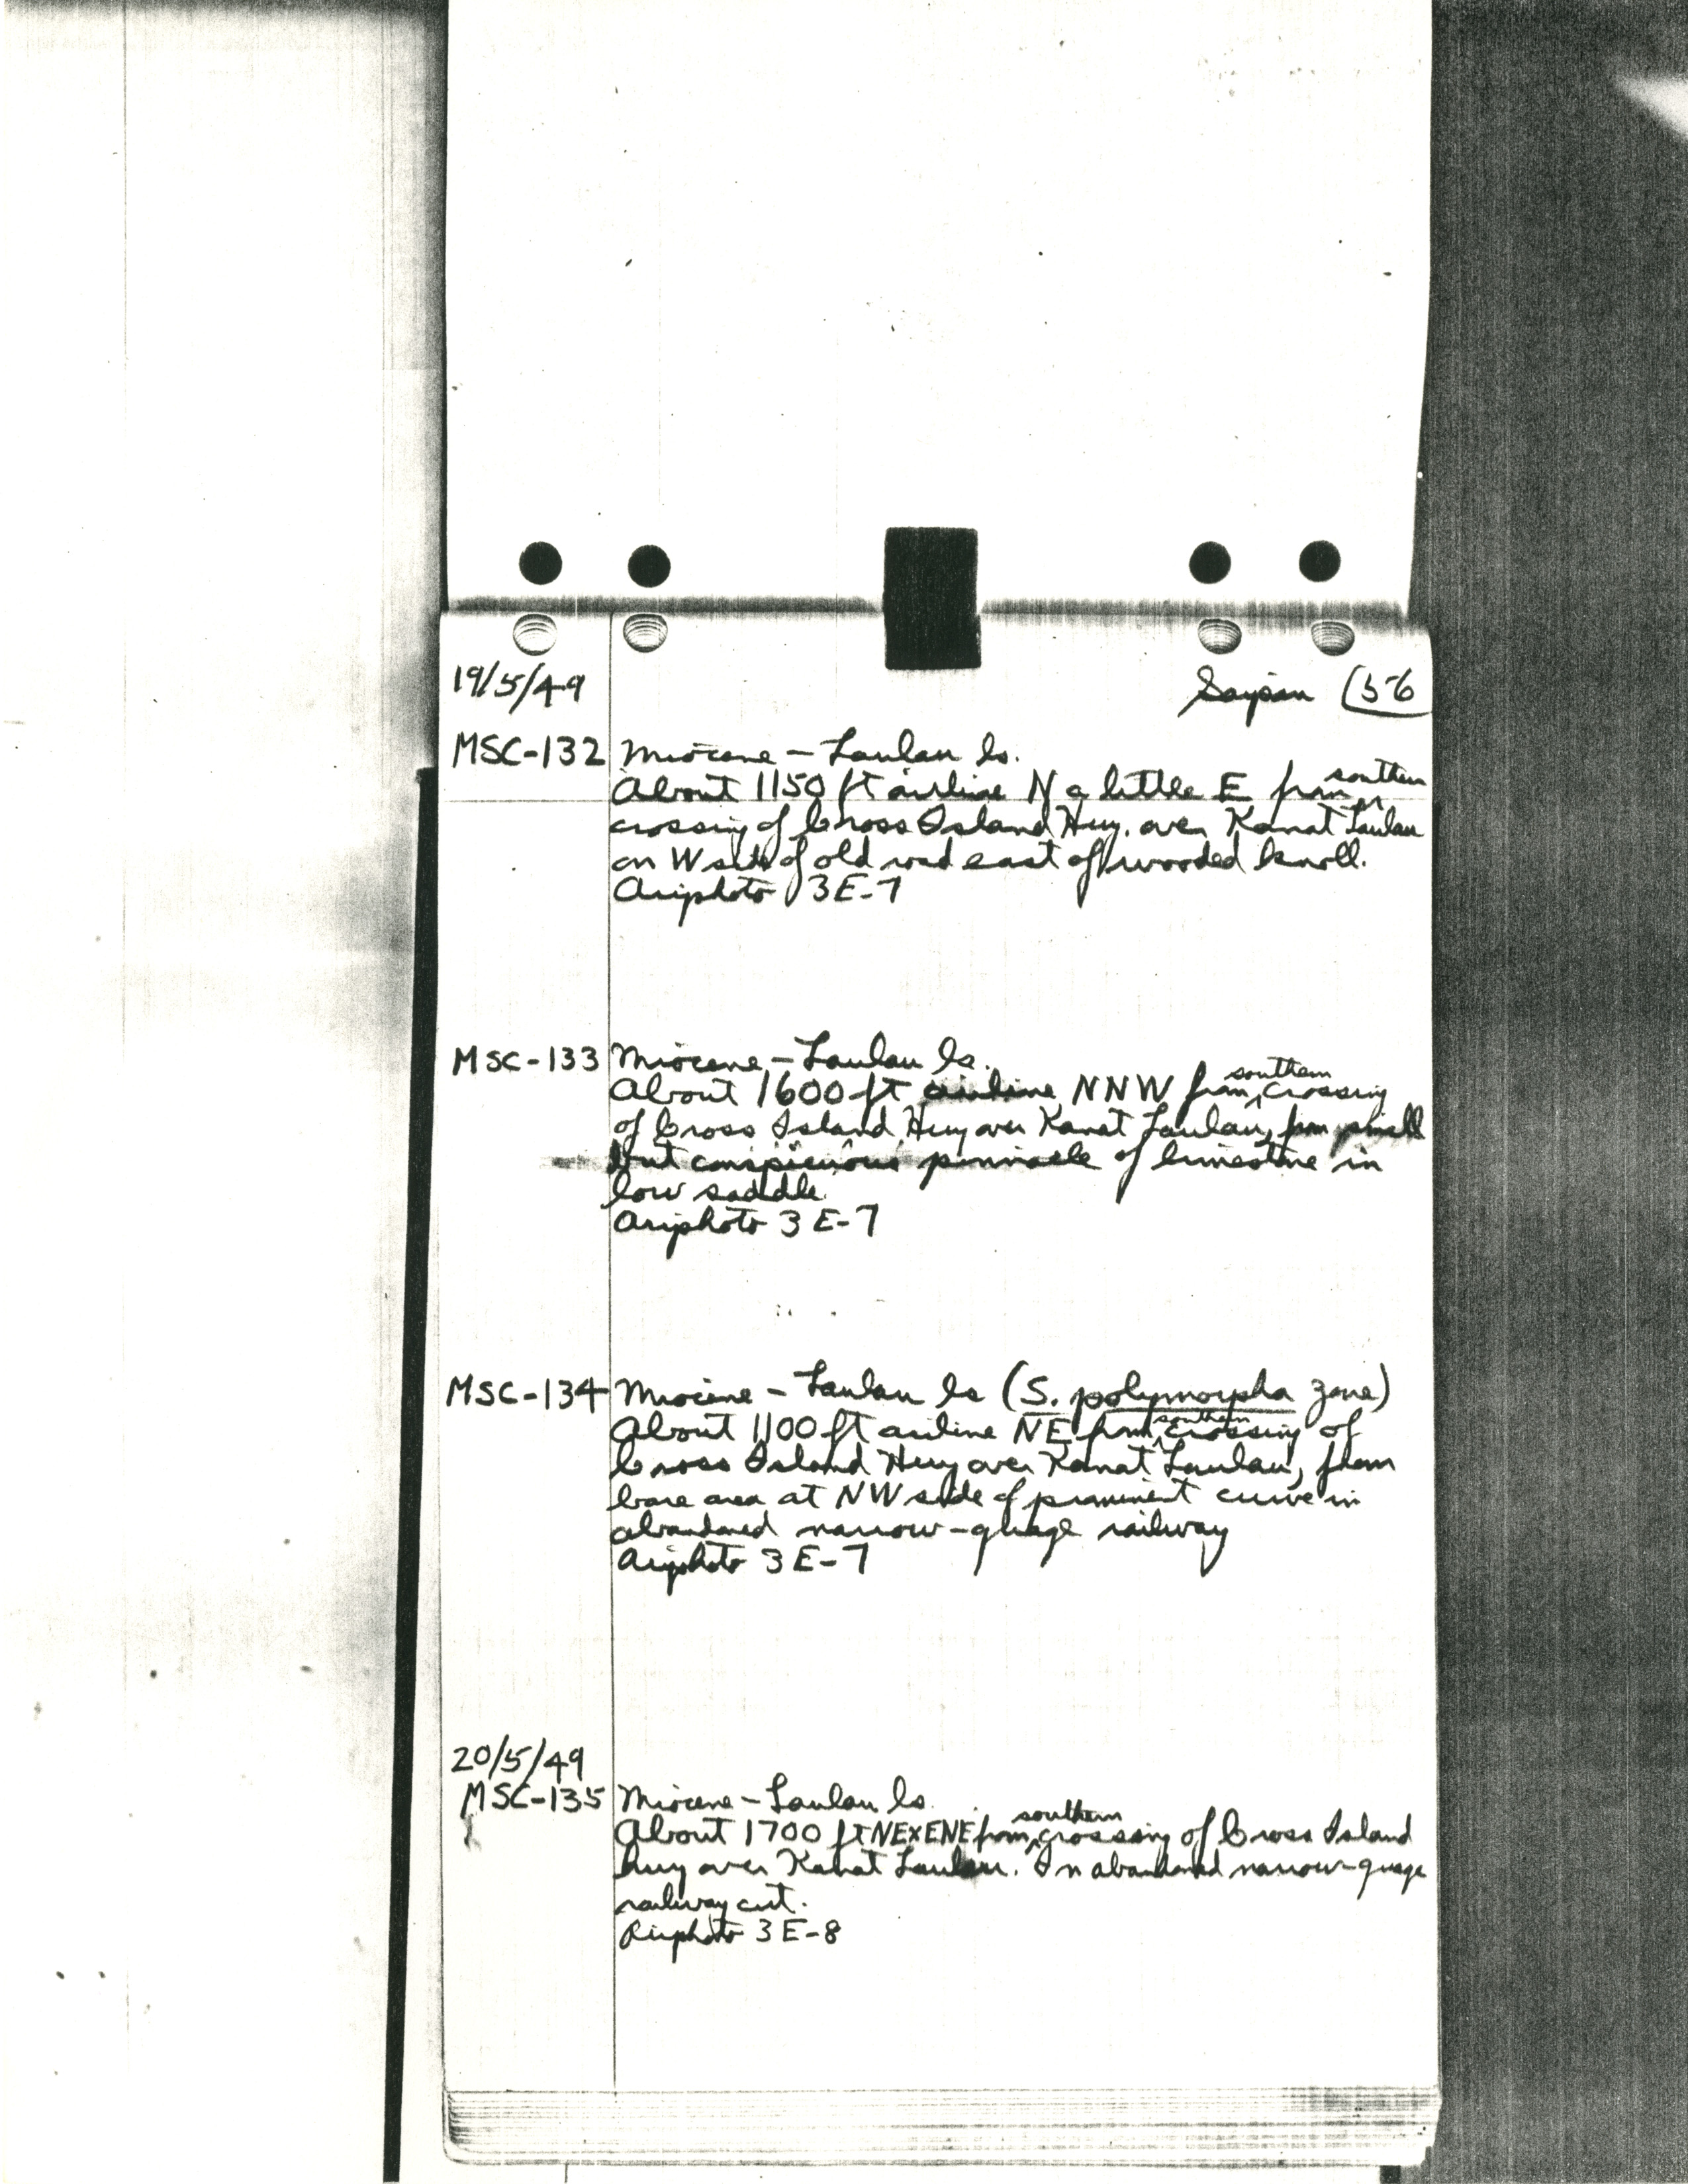 19/5/49 Saipan (56
MSC-132 Miocene - Laulau ls.
About 1150 ft airline N a little E from southern
crossing of Cross Island Hwy. over Kanat Laulau
on W side of old road east of wooded knoll.
Airphoto 3E-7
MSC-133 Miocene - Laulau ls.
About 1600 ft airline NNW from southern crossing
of Cross Island Hwy over Kanat Laulau, from small
but conspicuous pinnacle of limestone in
low saddle.
Airphoto 3E-7
MSC-134 Miocene - Laulau ls (S. polymorpha zone)
About 1100 ft airline NE from southern crossing of
Cross Island Hwy over Kanat Laulau, from
bare area at NW side of prominent curve in
abandoned narrow-guage railway
Airphoto 3E-7
20/5/49
MSC-135 Miocene - Laulau ls.
About 1700 ft NExENE from southern crossing of Cross Island
Hwy over Kanat Laulau. In abandoned narrow-guage
railway cut.
Airphoto 3E-8